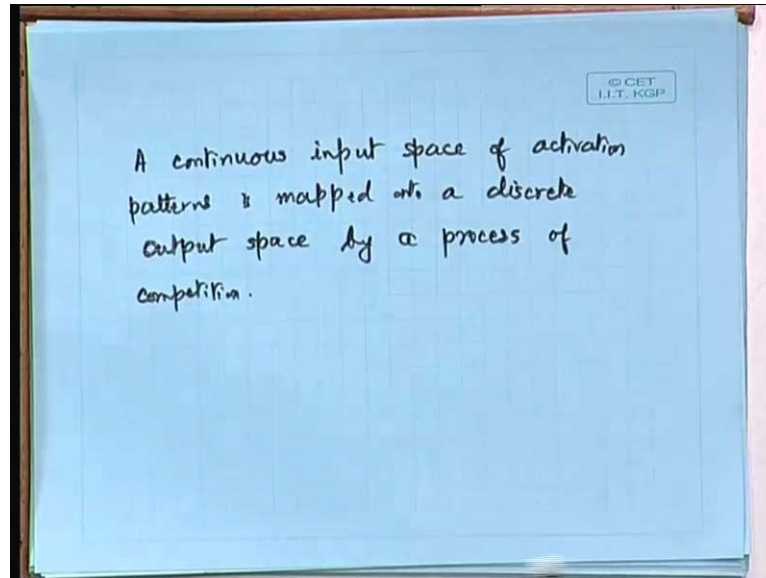 © CET
I.I.T. KGP
A continuous input space of activation
patterns is mapped onto a discrete
output space by a process of
competition.